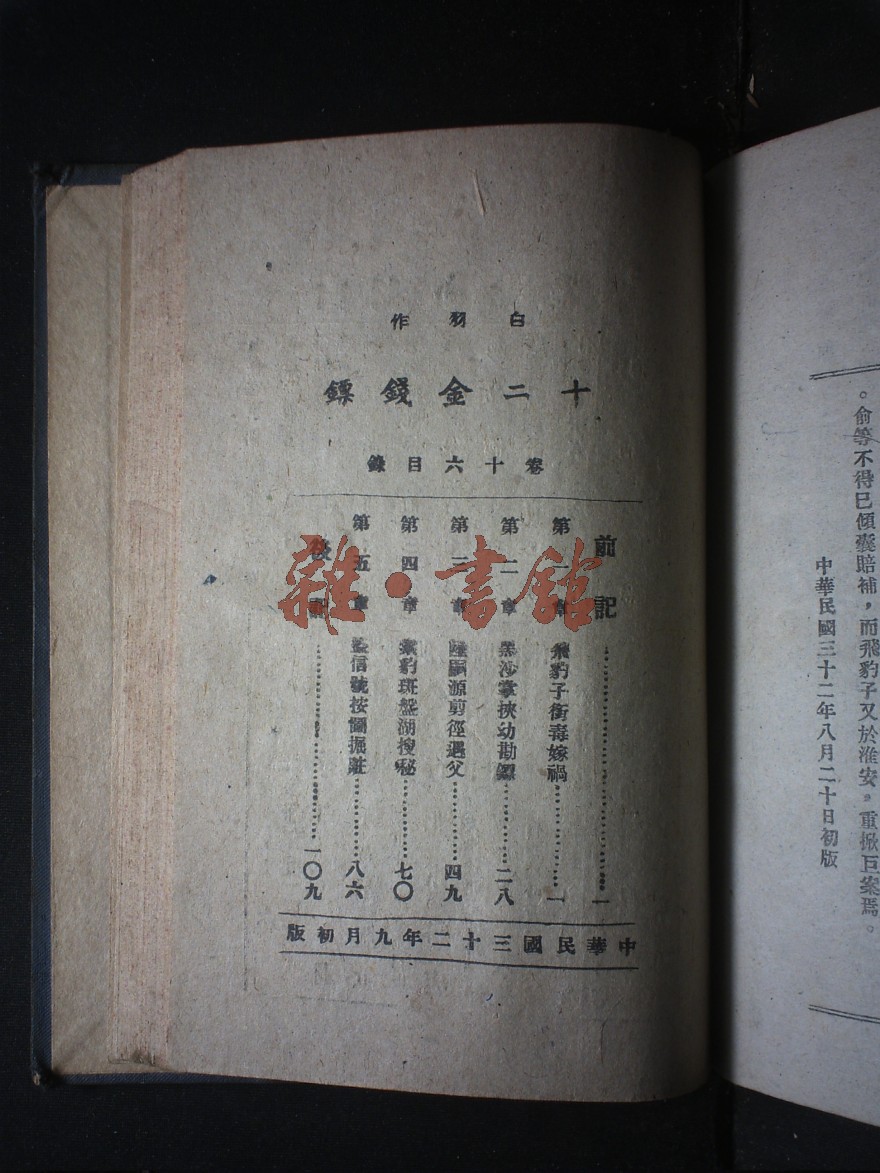 白羽作
十二金錢鏢
卷十六目錄
前記……一
第一章 飛豹子銜毒嫁禍……一
第二章 黑沙掌挾幼勘鏢……二八
第三章 陸嗣源剪徑遇父……四九
第四章 豹斑盤湖搜秘……七〇
第五章 信號按圖掘贓……八六
後記……一〇九
中華民國三十二年九月初版
雜·書館
。俞等不得已傾囊賠補，而飛豹子又於淮安，重掀巨案焉。
中華民國三十二年八月二十日初版